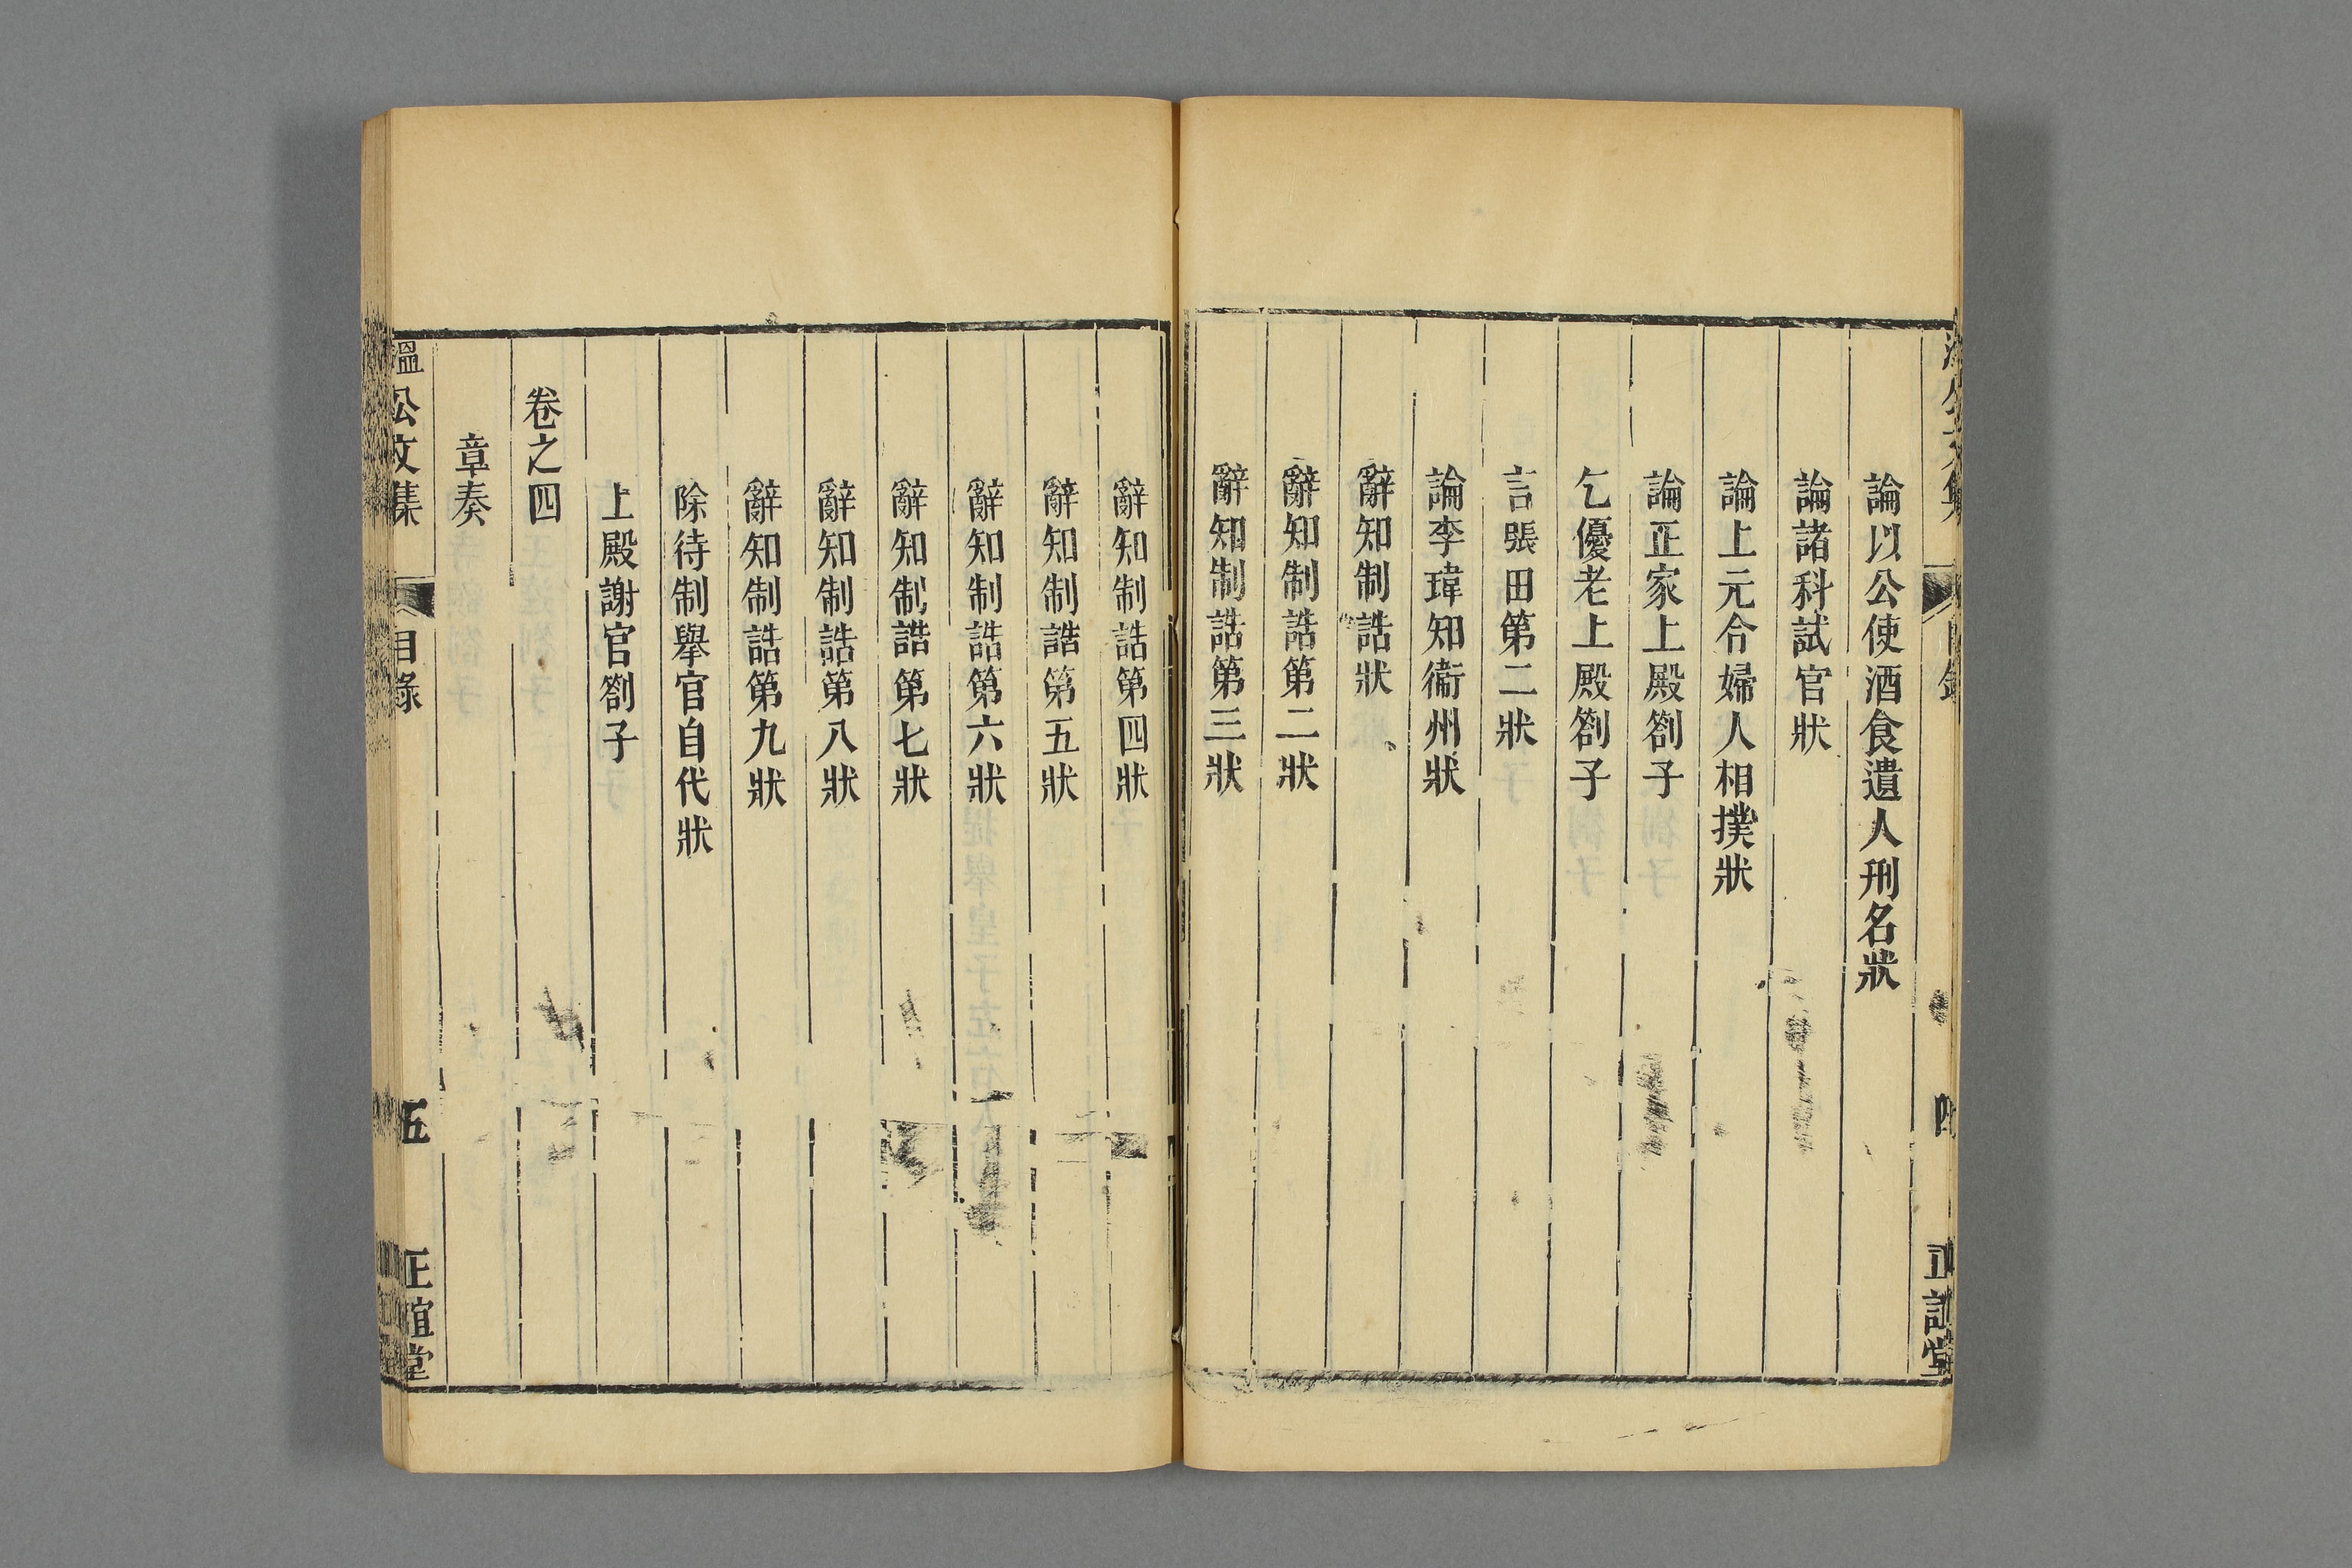 論以公使酒食遺人刑名狀
論諸科試官狀
論上元令婦人相撲狀
論正家上殿劄子
乞優老上殿劄子
言張田第二狀
論李瑋知衞州狀
辭知制誥狀
辭知制誥第二狀
辭知制誥第三狀
辭知制誥第四狀
辭知制誥第五狀
辭知制誥第六狀
辭知制誥第七狀
辭知制誥第八狀
辭知制誥第九狀
除待制舉官自代狀
上殿謝官劄子
卷之四
章奏
溫公文集 目錄 五 正誼堂